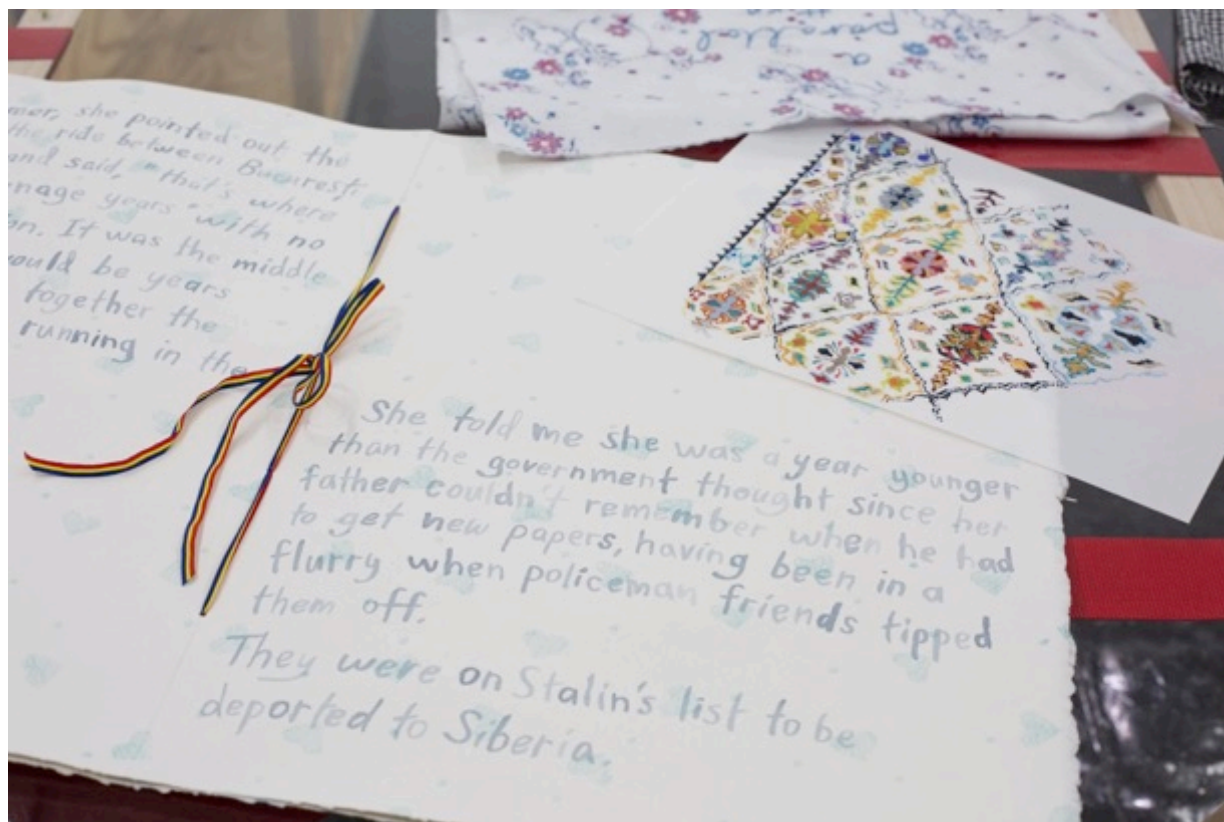 mer, she pointed out the
the ride between Bucuresti
and said, "that's where
nage years" with no
on. It was the middle
ould be years
together the
running in the
She told me she was a year younger
than the government thought since her
father couldn't remember when he had
to get new papers, having been in a
flurry when policeman friends tipped
them off.
They were on Stalin's list to be
deported to Siberia.
a
parallel